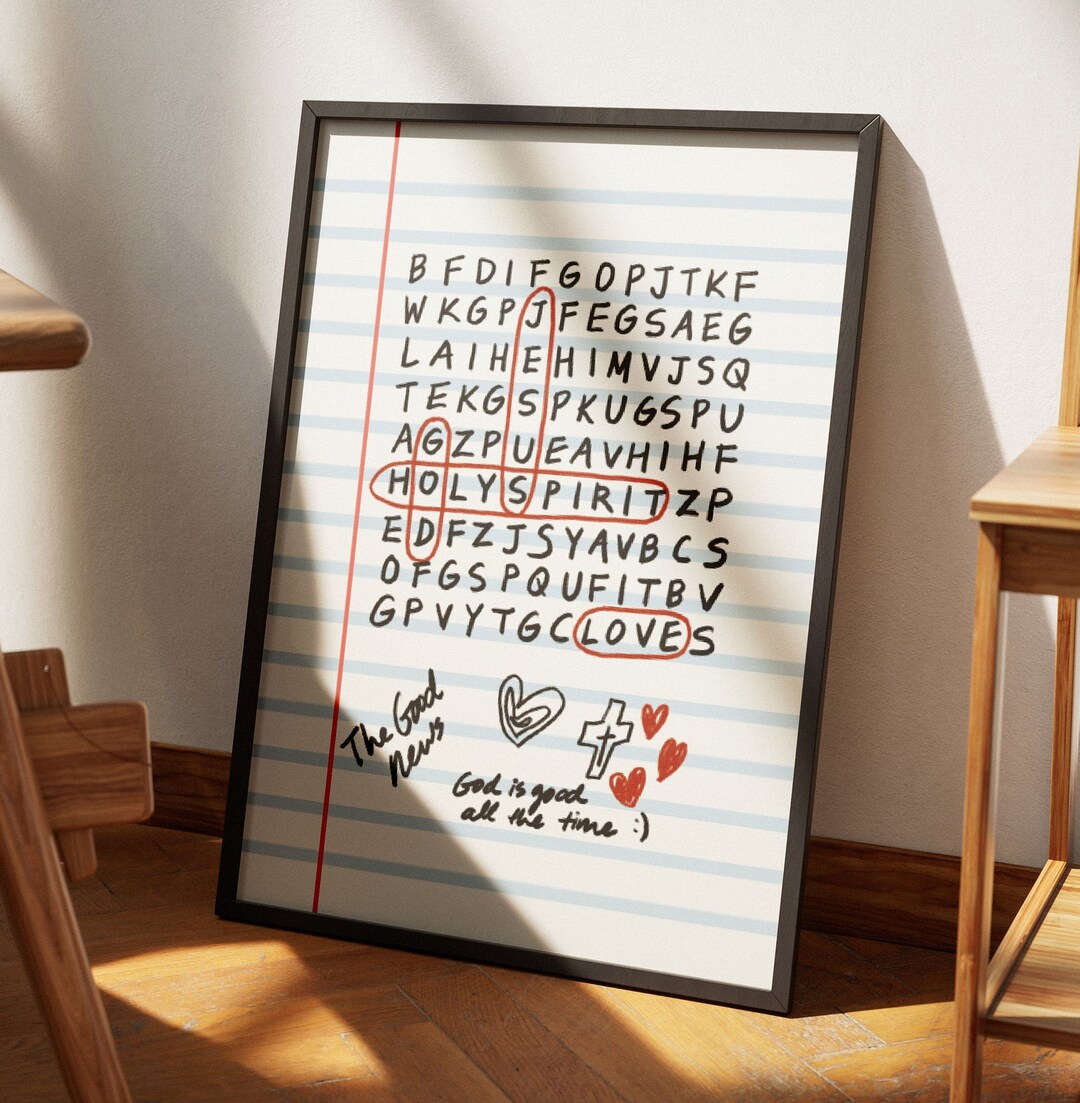 B F D I F G O P J T K F
W K G P J F E G S A E G
L A I H E H I M V J S Q
T E K G S P K U G S P U
A G Z P U E A V H I H F
H O L Y S P I R I T Z P
E D F Z J S Y A V B C S
O F G S P Q U F I T B V
G P V Y T G C L O V E S
The Good
news
God is good
all the time :)